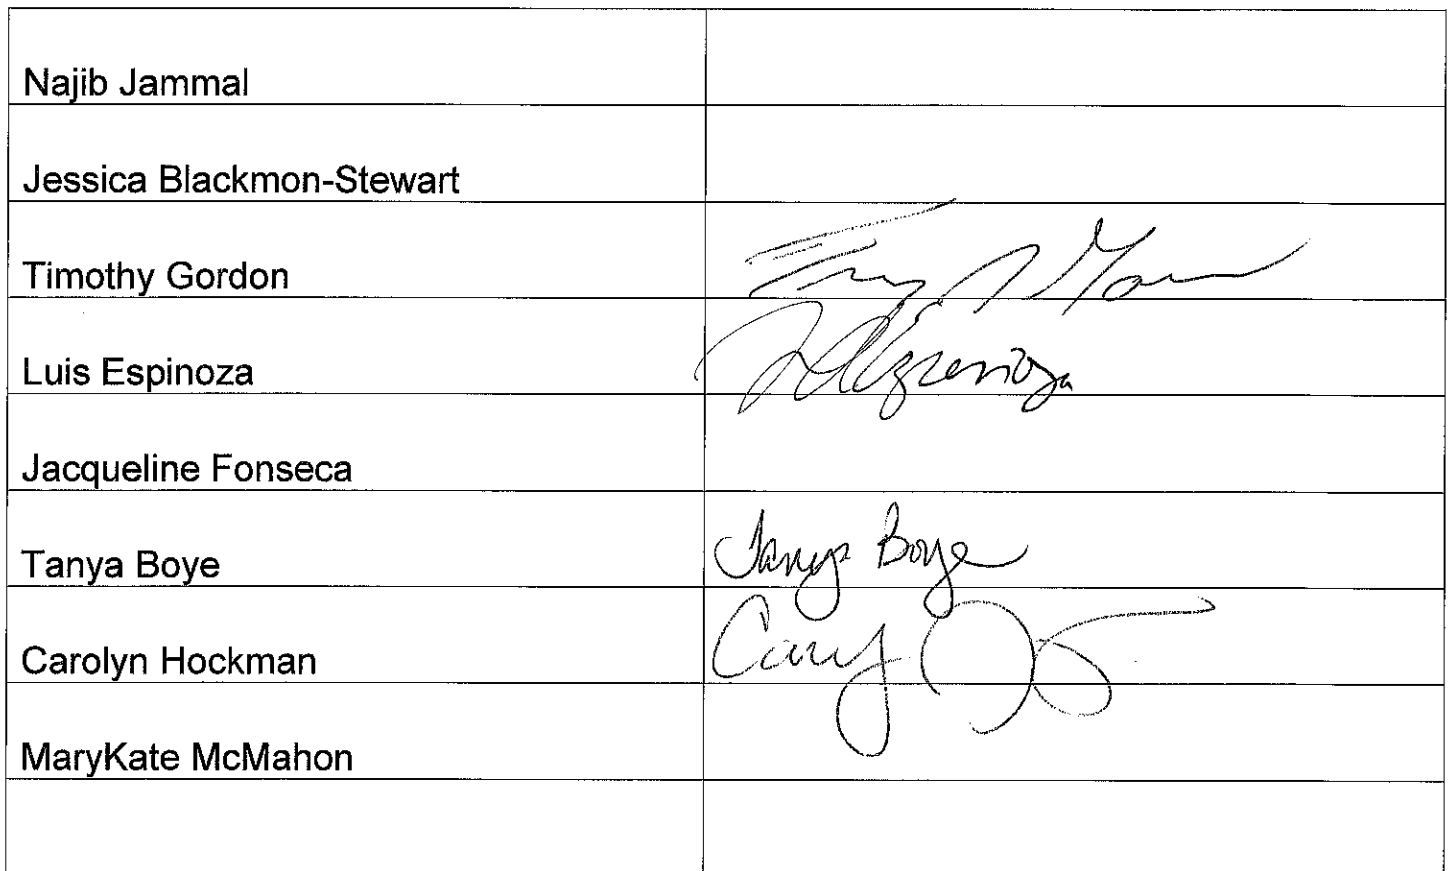 Najib Jammal
Jessica Blackmon-Stewart
Timothy Gordon
Luis Espinoza
Jacqueline Fonseca
Tanya Boye Tanya Boye
Carolyn Hockman
MaryKate McMahon